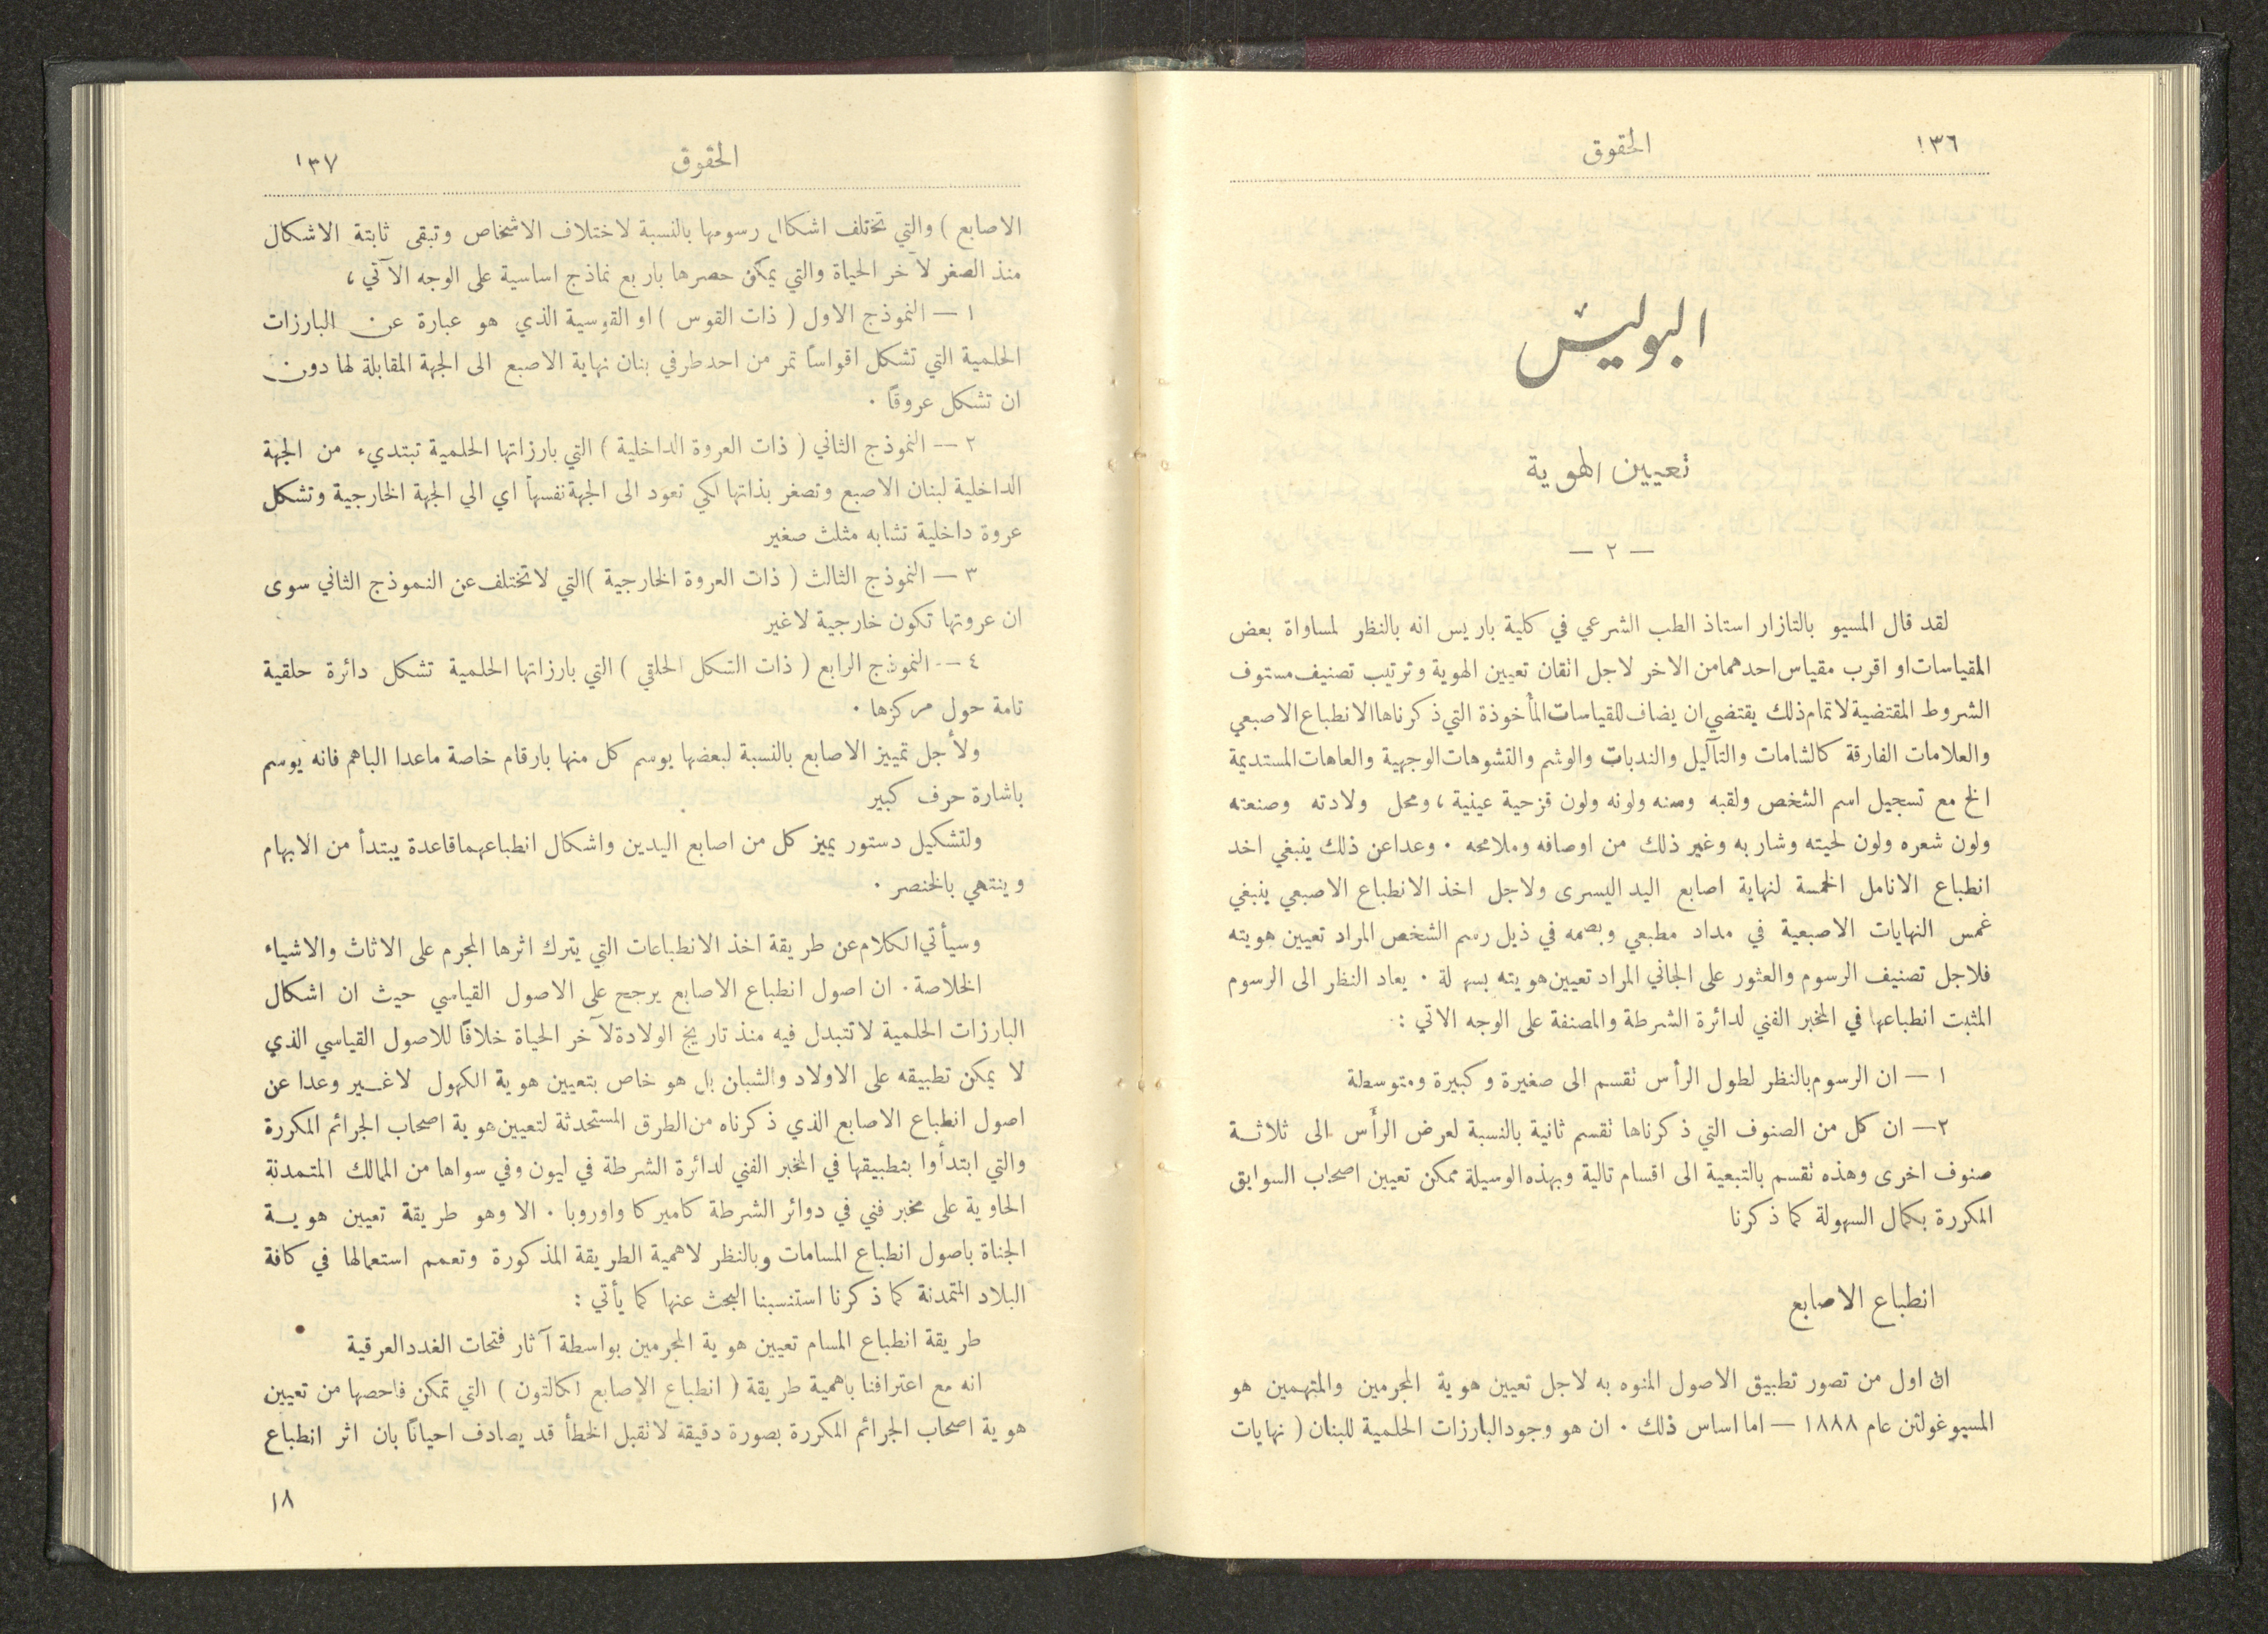 ١٣٦
الحقوق
البوليس
تعيين الهوية
— ٢ —
لقد قال المسيو بالتازار استاذ الطب الشرعي في كلية باريس انه بالنظر لمساواة بعض
المقياسات او اقرب مقياس احدهما من الاخر لاجل اتقان تعيين الهوية وترتيب تصنيف مستوف
الشروط المقتضية لاتمام ذلك يقتضي ان يضاف للقياسات المأخوذة التي ذكرناها الانطباع الاصبعي
والعلامات الفارقة كالشامات والتآليل والندبات والوشم والتشوهات الوجهية والعاهات المستديمة
الخ مع تسجيل اسم الشخص ولقبه وسنه ولونه ولون قزحية عينية ، ومحل ولادته وصنعته
ولون شعره ولون لحيته وشاربه وغير ذلك من اوصافه وملامحه . وعدا عن ذلك ينبغي اخد
انطباع الانامل الخمسة لنهاية اصابع اليد اليسرى ولاجل اخذ الانطباع الاصبعي ينبغي
غمس النهايات الاصبعية في مداد مطبعي وبصمه في ذيل رسم الشخص المراد تعيين هويته
فلاجل تصنيف الرسوم والعثور على الجاني المراد تعيين هويته بسهولة . يعاد النظر الى الرسوم
المثبت انطباعها في المخبر الفني لدائرة الشرطة والمصنفة على الوجه الاتي :
١ — ان الرسوم بالنظر لطول الرأس تقسم الى صغيرة وكبيرة ومتوسطة
٢— ان كل من الصنوف التي ذكرناها تقسم ثانية بالنسبة لعرض الرأس الى ثلاثة
صنوف اخرى وهذه تقسم بالتبعية الى اقسام تالية وبهذه الوسيلة ممكن تعيين اصحاب السوابق
المكررة بكمال السهولة كما ذكرنا
انطباع الاصابع
ان اول من تصور تطبيق الاصول المنوه به لاجل تعيين هوية المجرمين والمتهمين هو
المسيو غولتن عام ١٨٨٨ — اما اساس ذلك . ان هو وجود البارزات الحلمية للبنان ( نهايات
الحقوق
١٣٧
الاصابع ) والتي تختلف اشكال رسومها بالنسبة لاختلاف الاشخاص وتبقى ثابتة الاشكال
منذ الصغر لآخر الحياة والتي يمكن حصرها باربع نماذج اساسية على الوجه الآتي ،
١ — النموذج الاول ( ذات القوس ) او القوسية الذي هو عبارة عن البارزات
الحلمية التي تشكل اقواساً تمر من احد طرفي بنان نهاية الاصبع الى الجهة المقابلة لها دون
ان تشكل عروقاً .
٢ — النموذج الثاني ( ذات العروة الداخلية ) التي بارزاتها الحلمية تبتديء من الجهة
الداخلية لبنان الاصبع وتصغر بذاتها لكي تعود الى الجهة نفسها اي الي الجهة الخارجية وتشكل
عروة داخلية تشابه مثلث صغير
٣ — النموذج الثالث ( ذات العروة الخارجية ) التي لا تختلف عن النموذج الثاني سوى
ان عروتها تكون خارجية لا غير
٤ — النموذج الرابع ( ذات الشكل الحلقي ) التي بارزاتها الحلمية تشكل دائرة حلقية
تامة حول مركزها .
ولأجل تمييز الاصابع بالنسبة لبعضها يوسم كل منها بارقام خاصة ما عدا الباهم فانه يوسم
باشارة حرف كبير
ولتشكيل دستور يميز كل من اصابع اليدين واشكال انطباعهما قاعدة يبتدأ من الابهام
وينتهي بالخنصر .
وسيأتي الكلام عن طريقة اخذ الانطباعات التي يترك اثرها المجرم على الاثاث والاشياء
الخلاصة . ان اصول انطباع الاصابع يرجح على الاصول القياسي حيث ان اشكال
البارزات الحلمية لا تتبدل فيه منذ تاريخ الولادة لآخر الحياة خلافاً للاصول القياسي الذي
لا يمكن تطبيقه على الاولاد والشبان بل هو خاص بتعيين هوية الكهول لا غير وعدا عن
اصول انطباع الاصابع الذي ذكرناه من الطرق المستحدثة لتعيين هوية اصحاب الجرائم المكررة
والتي ابتدأوا بتطبيقها في المخبر الفني لدائرة الشرطة في ليون وفي سواها من الممالك المتمدنة
الحاوية على مخبر فني في دوائر الشرطة كاميركا واوروبا . الا وهو طريقة تعيين هوية
الجناة باصول انطباع المسامات وبالنظر لاهمية الطريقة المذكورة وتعمم استعمالها في كافة
البلاد المتمدنة كما ذكرنا استنسبنا البحث عنها كما يأتي :
طريقة انطباع المسام تعيين هوية المجرمين بواسطة آثار فتحات الغدد العرقية
انه مع اعترافنا باهمية طريقة ( انطباع الاصابع لكالتون ) التي تمكن فاحصها من تعيين
هوية اصحاب الجرائم المكررة بصورة دقيقة لا تقبل الخطأ قد يصادف احياناً بان اثر انطباع
١٨